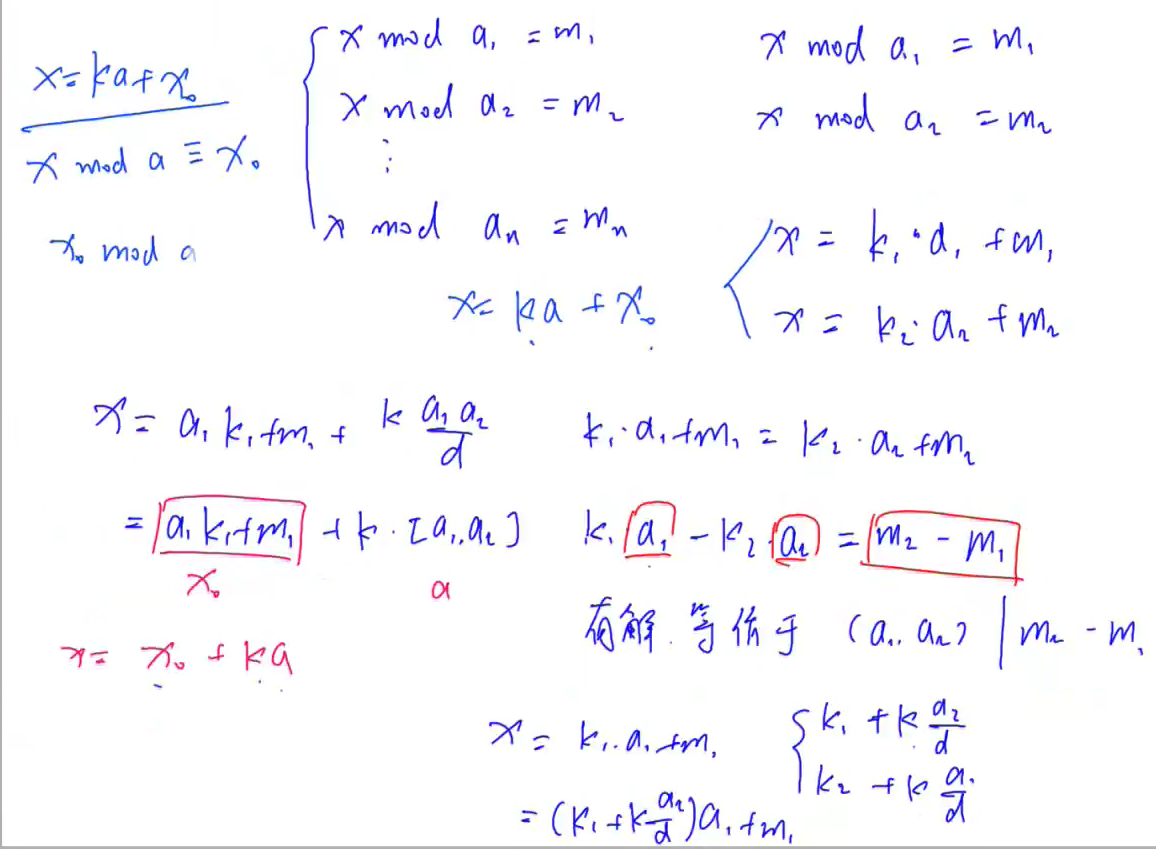 x = ka + x₀
x mod a ≡ x₀
x₀ mod a
x mod a₁ = m₁
x mod a₂ = m₂
⋮
x mod aₙ = mₙ
x = ka + x₀
x mod a₁ = m₁
x mod a₂ = m₂
x = k₁·a₁ + m₁
x = k₂·a₂ + m₂
x = a₁k₁ + m₁ + k a₁a₂/d
= a₁k₁ + m₁ + k·[a₁,a₂]
x₀ a
x = x₀ + ka
k₁·a₁ + m₁ = k₂·a₂ + m₂
k₁ a₁ - k₂ a₂ = m₂ - m₁
有解.等价于 (a₁,a₂) | m₂ - m₁
x = k₁·a₁ + m₁
= (k₁ + k a₂/d)a₁ + m₁
k₁ + k a₂/d
k₂ + k a₁/d